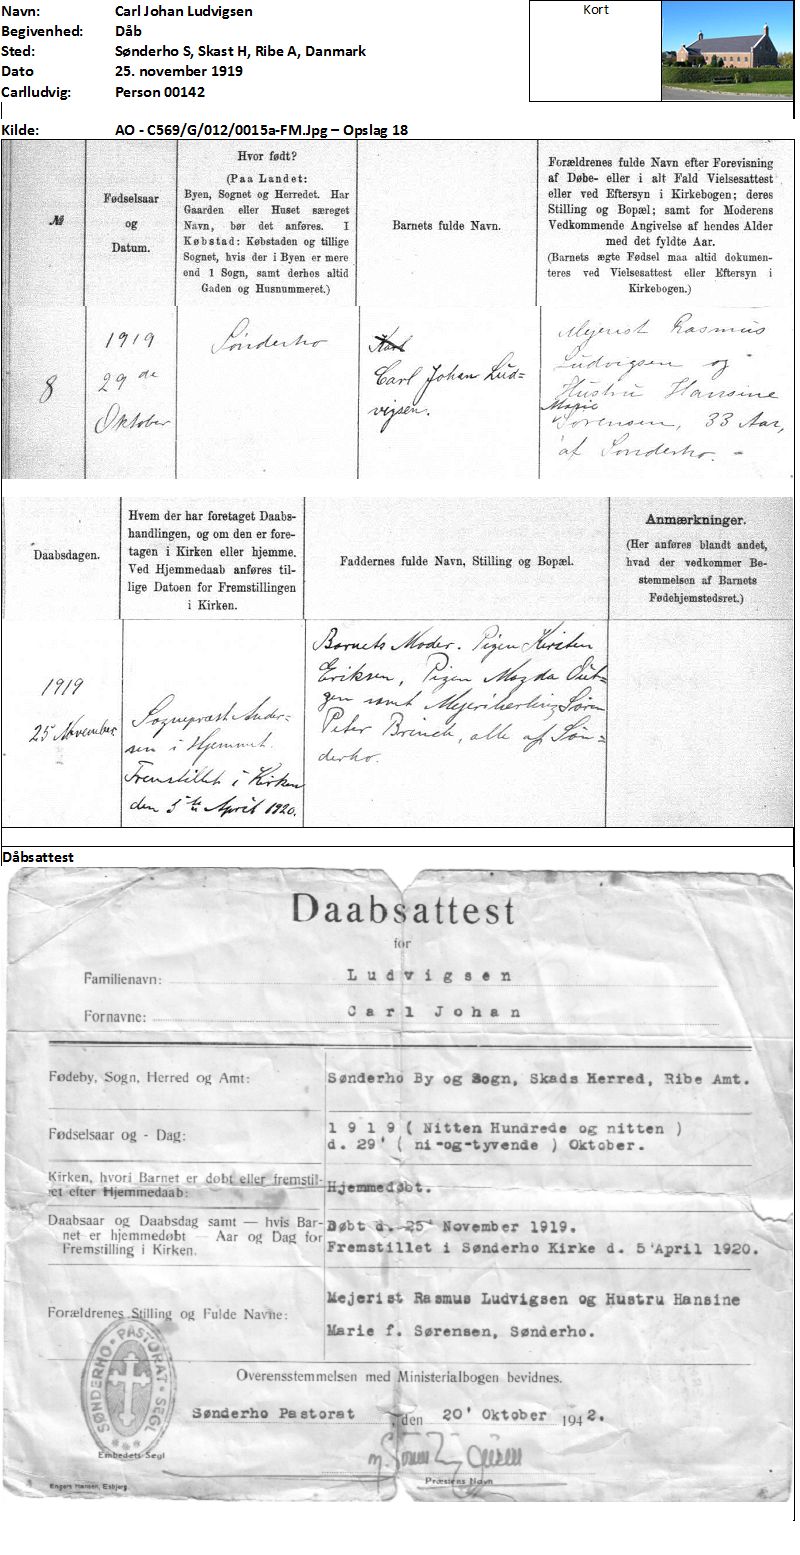 Navn: Carl Johan Ludvigsen
Begivenhed: Dåb
Sted: Sønderho S, Skast H, Ribe A, Danmark
Dato 25. november 1919
Carlludvig: Person 00142
Kort
Kilde: AO - C569/G/012/0015a-FM.Jpg – Opslag 18
№
Fødselsaar
og
Datum.
Hvor født?
(Paa Landet:
Byen, Sognet og Herredet. Har
Gaarden eller Huset særeget
Navn, bør det anføres. I
Købstad: Købstaden og tillige
Sognet, hvis der i Byen er mere
end 1 Sogn, samt derhos altid
Gaden og Husnummeret.)
Barnets fulde Navn.
Forældrenes fulde Navn efter Forevisning
af Døbe- eller i alt Fald Vielsesattest
eller ved Eftersyn i Kirkebogen; deres
Stilling og Bopæl; samt for Moderens
Vedkommende Angivelse af hendes Alder
med det fyldte Aar.
(Barnets ægte Fødsel maa altid dokumen-
teres ved Vielsesattest eller Eftersyn i
Kirkebogen.)
8
1919
29 de
Oktober
Sønderho
Karl
Carl Johan Lud=
vigsen.
Mejerist Rasmus
Ludvigsen og
Hustru Hansine
Marie
Sørensen, 33 Aar,
af Sønderho. -
Daabsdagen.
Hvem der har foretaget Daabs-
handlingen, og om den er fore-
tagen i Kirken eller hjemme.
Ved Hjemmedaab anføres til-
lige Datoen for Fremstillingen
i Kirken.
Faddernes fulde Navn, Stilling og Bopæl.
Anmærkninger.
(Her anføres blandt andet,
hvad der vedkommer Be-
stemmelsen af Barnets
Fødehjemstedsret.)
1919
25 November
Sognepræst Ander-
sen i Hjemmet.
Fremstillet i Kirken
den 5te April 1920.
Barnets Moder. Pigen Kirsten
Eriksen, Pigen Magda
samt Mejerilærling Søren
Peter Brinch, alle af Søn=
derho.
Dåbsattest
Daabsattest
for
Familienavn: Ludvigsen
Fornavne: Carl Johan
Fødeby, Sogn, Herred og Amt: Sønderho By og Sogn, Skads Herred, Ribe Amt.
Fødselsaar og - Dag: 1919 ( Nitten Hundrede og nitten )
d. 29' ( ni-og-tyvende ) Oktober.
Kirken, hvori Barnet er døbt eller fremstil-
let efter Hjemmedaab: Hjemmedøbt.
Daabsaar og Daabsdag samt — hvis Bar-
net er hjemmedøbt — Aar og Dag for
Fremstilling i Kirken.
Døbt d. 25' November 1919.
Fremstillet i Sønderho Kirke d. 5'April 1920.
Forældrenes Stilling og Fulde Navne:
Mejerist Rasmus Ludvigsen og Hustru Hansine
Marie f. Sørensen, Sønderho.
SØNDERHO PASTORAT SEGL
Embedets Segl
Overensstemmelsen med Ministerialbogen bevidnes.
Sønderho Pastorat , den 20' Oktober 1942.
Præstens Navn
Engers Hansen, Esbjerg.